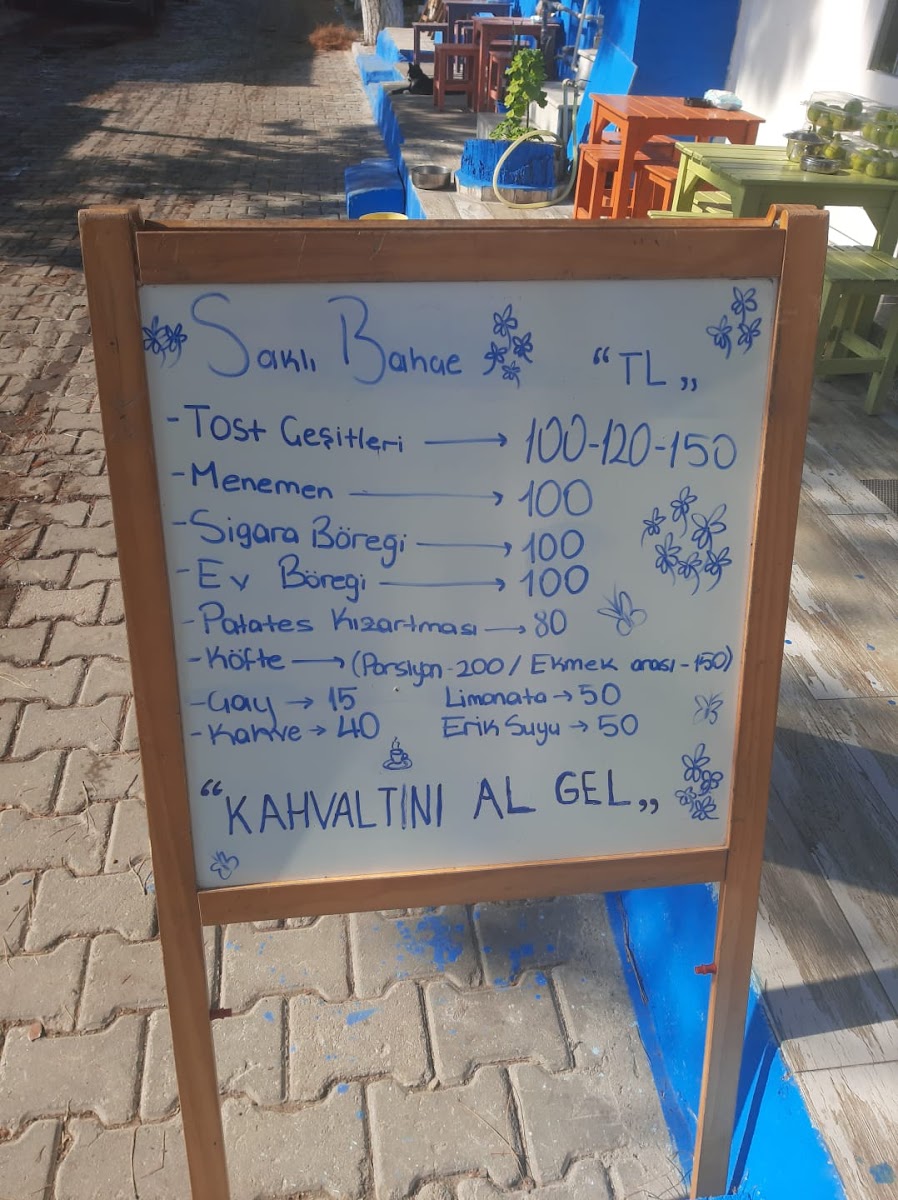 Saklı Bahçe "TL"
- Tost Çeşitleri → 100-120-150
- Menemen → 100
- Sigara Böreği → 100
- Ev Böreği → 100
- Patates Kızartması → 80
- Köfte → (Porsiyon-200 / Ekmek arası-150)
- Çay → 15 Limonata → 50
- Kahve → 40 Erik Suyu → 50
"KAHVALTINI AL GEL"